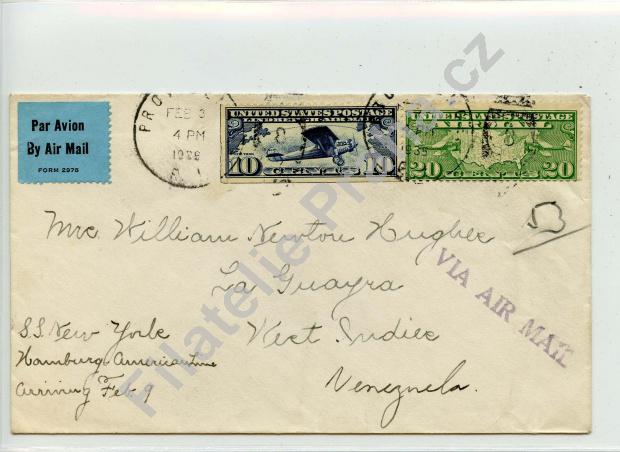 Par Avion
By Air Mail
FORM 2978
FEB 3
4 PM
R. I.
UNITED STATES POSTAGE
LINDBERGH AIR MAIL
10 CENTS 10
UNITED STATES POSTAGE
AIR MAIL
20 CENTS 20
Mrs. William Newton Hughes
La Guayra
West Indies
Venezuela.
VIA AIR MAIL
S.S. New York
Hamburg-American Line
arriving Feb 9
Filatelie Praha.cz